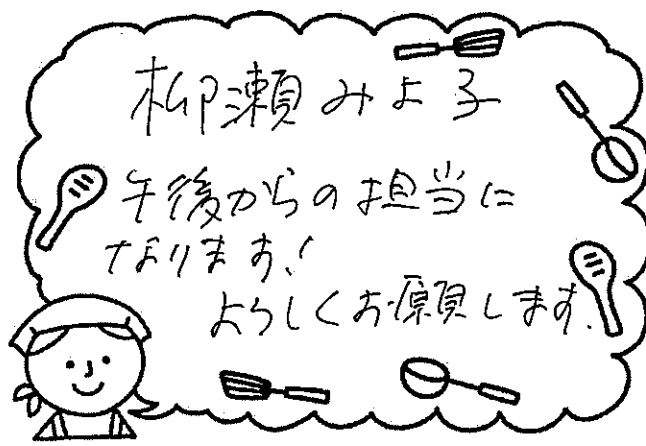 柳瀬みよ子
午後からの担当に
なります!
よろしくお願します.